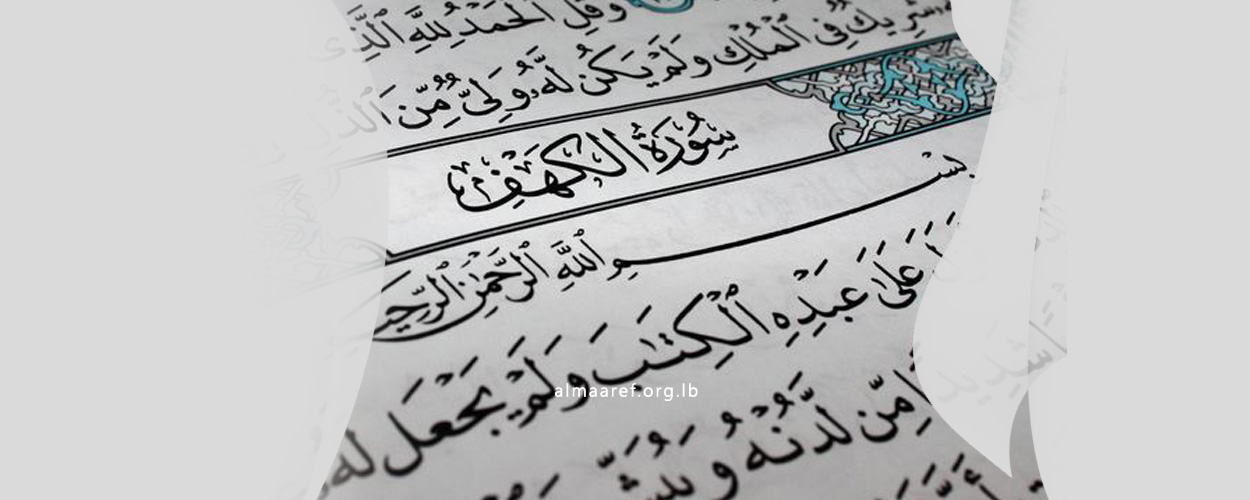 وَقُلِ ٱلْحَمْدُ لِلَّهِ ٱلَّذِى
شَرِيكٌ فِى ٱلْمُلْكِ وَلَمْ يَكُن لَّهُۥ وَلِىٌّ مِّنَ ٱلذُّلِّ
سُورَةُ الكَهْفِ
بِسْمِ ٱللَّهِ ٱلرَّحْمَٰنِ ٱلرَّحِيمِ
عَلَىٰ عَبْدِهِ ٱلْكِتَٰبَ وَلَمْ يَجْعَل لَّهُۥ
شَدِيدًا مِّن لَّدُنْهُ وَيُبَشِّرَ
almaaref.org.lb